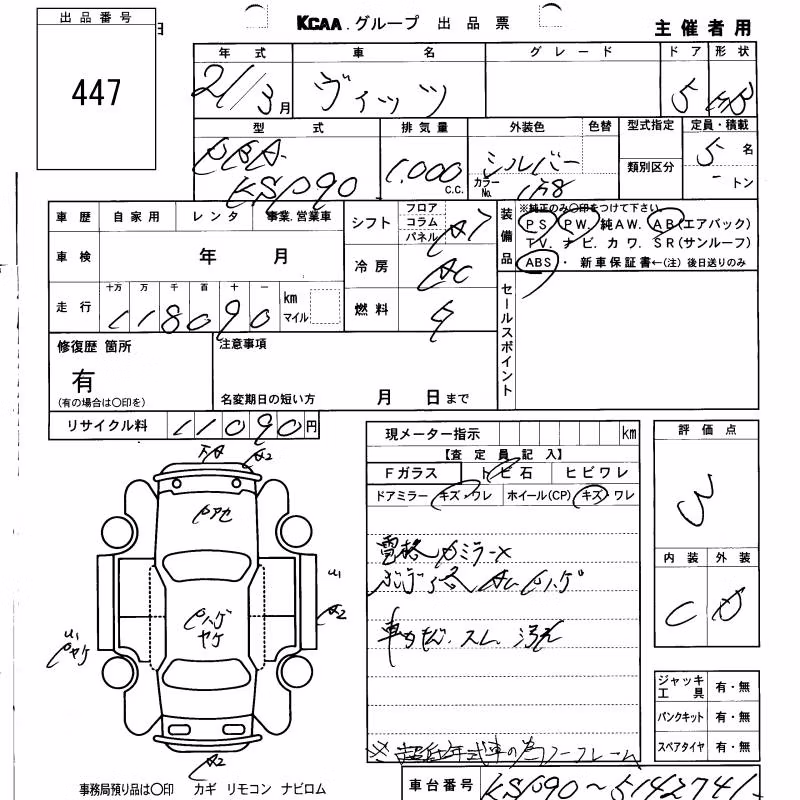 出品番号
447
日
KCAA グループ 出品票
主催者用
年式 車名 グレード ドア 形状
21/3月 ヴィッツ 5 HB
型式 排気量 外装色 色替 型式指定 定員・積載
DBA- KSP90 1.000 C.C. シルバー カラーNo. 1F8 類別区分 5名 - トン
車歴 自家用 レンタ 事業.営業車
シフト フロア コラム パネル AT
装備品 ※純正のみ○印をつけて下さい。
PS PW. 純AW. AB(エアバック)
TV. ナビ. カワ. SR(サンルーフ)
ABS・ 新車保証書←(注)後日送りのみ
車検 年 月
冷房 AC
走行 十万 万 千 百 十 一 km マイル
118090
燃料 G
セールスポイント
修復歴 箇所 注意事項
有
(有の場合は○印を) 名変期日の短い方 月 日まで
リサイクル料 11090円
現メーター指示 km
評価点
3
【査定員記入】
Fガラス トビ石 ヒビワレ
ドアミラー キズ・ワレ ホイール(CP) キズ・ワレ
内装 外装
C D
A2
U1
A2
U1
A2
ヤケ
車内
ジャッキ工具 有・無
パンクキット 有・無
スペアタイヤ 有・無
※超低年式車の為ノークレーム
事務局預り品は○印 カギ リモコン ナビロム
車台番号 KSP90～5142741-